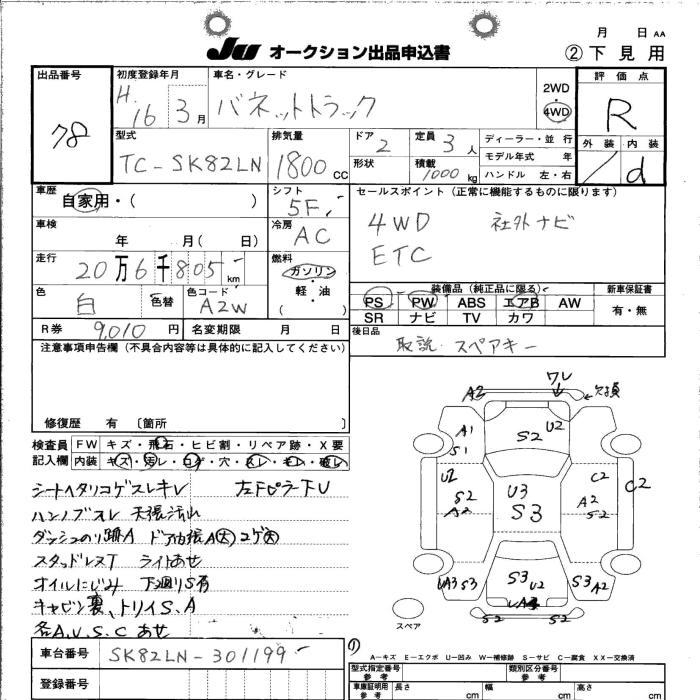 月 日 AA
JU オークション出品申込書 ② 下見用
出品番号 78
初度登録年月 H.16 3月
車名・グレード バネットトラック
2WD
4WD
評価点 R
外装 内装
/ d
型式 TC-SK82LN
排気量 1800 CC
ドア 2
形状
定員 3人
積載 1000 kg
ディーラー・並 行
モデル年式 年
ハンドル 左・右
車歴 自家用・( )
シフト 5F
セールスポイント (正常に機能するものに限ります)
4WD 社外ナビ
ETC
車検 年 月( 日)
冷房 AC
走行 20万6千805 km
燃料 ガソリン
軽・油
( )
色 白 色替
色コード A2W
装備品 (純正品に限る)
新車保証書
PS PW ABS エアB AW
SR ナビ TV カワ
有・無
R券 9,010 円
名変期限 月 日
後日品 取説・スペアキー
注意事項申告欄 (不具合内容等は具体的に記入してください)
修復歴 有 〔箇所 〕
検査員 FW キズ・飛石・ヒビ割・リペア跡・X要
記入欄 内装 キズ・汚レ・コゲ・穴・スレ・モレ・破レ
シートヘタリコゲスレキレ 左FピラーFU
天張汚レ
スタッドレスT ライトあせ
オイルにじみ 下廻りS有
各A.U.S.C あせ
A2 ワレ 欠品
A1 S1
S2 U2
U2 S2 A2
U3 S3
C2 A2 S2
C2
UA3 S3
S3 U2
S3 A2
S2 S2
スペア
A-キズ E-エクボ U-凹み W-補修跡 S-サビ C-腐食 XX-交換済
車台番号 SK82LN-301199
登録番号
型式指定番号 参考
類別区分番号 参考
車庫証明用 参考
長さ cm
幅 cm
高さ cm